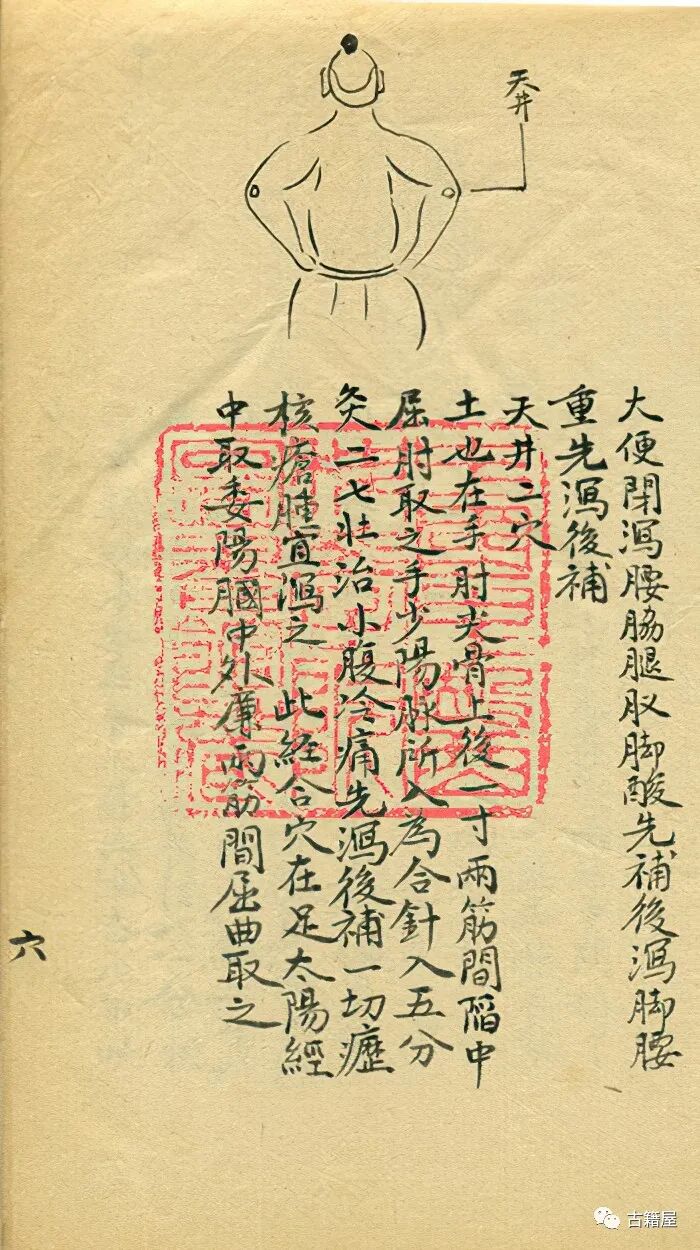 天井
大便閉瀉腰脇腿㕚脚酸先補後瀉脚腰
重先瀉後補
天井二穴
土也在手肘尖骨上後一寸兩筋間陷中
屈肘取之手少陽脉所入為合針入五分
灸二七壯治小腹冷痛先瀉後補一切瘂
核瘡腫宜瀉之 此經合穴在足太陽經
中取委陽膕中外廉兩筋間屈曲取之
六
古籍屋